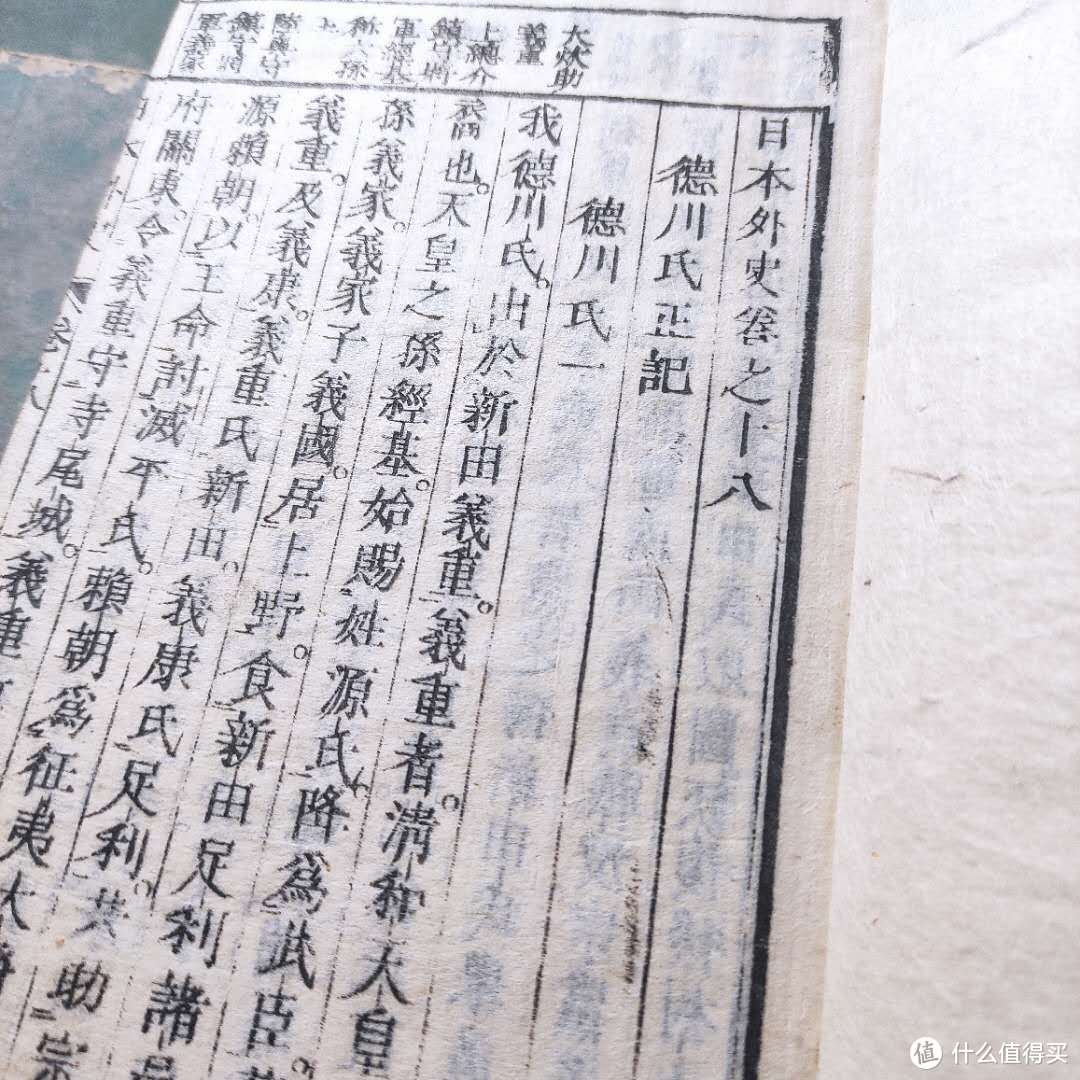 日本外史卷之十八
德川氏正記
德川氏一
我德川氏。出於新田義重。義重者。清和天皇
裔也。天皇之孫經基。始賜姓源氏。降爲武臣。
孫義家。義家子義國。居上野。食新田足利諸
義重及義康。義重氏新田。義康氏足利。共助宗
源賴朝。以王命討滅平氏。賴朝爲征夷大
府關東。令義重守寺尾城。義重
大炊助
義重
上總介
鎭守府
軍經基
陸奥守
鎭守府
軍義家
什么值得买